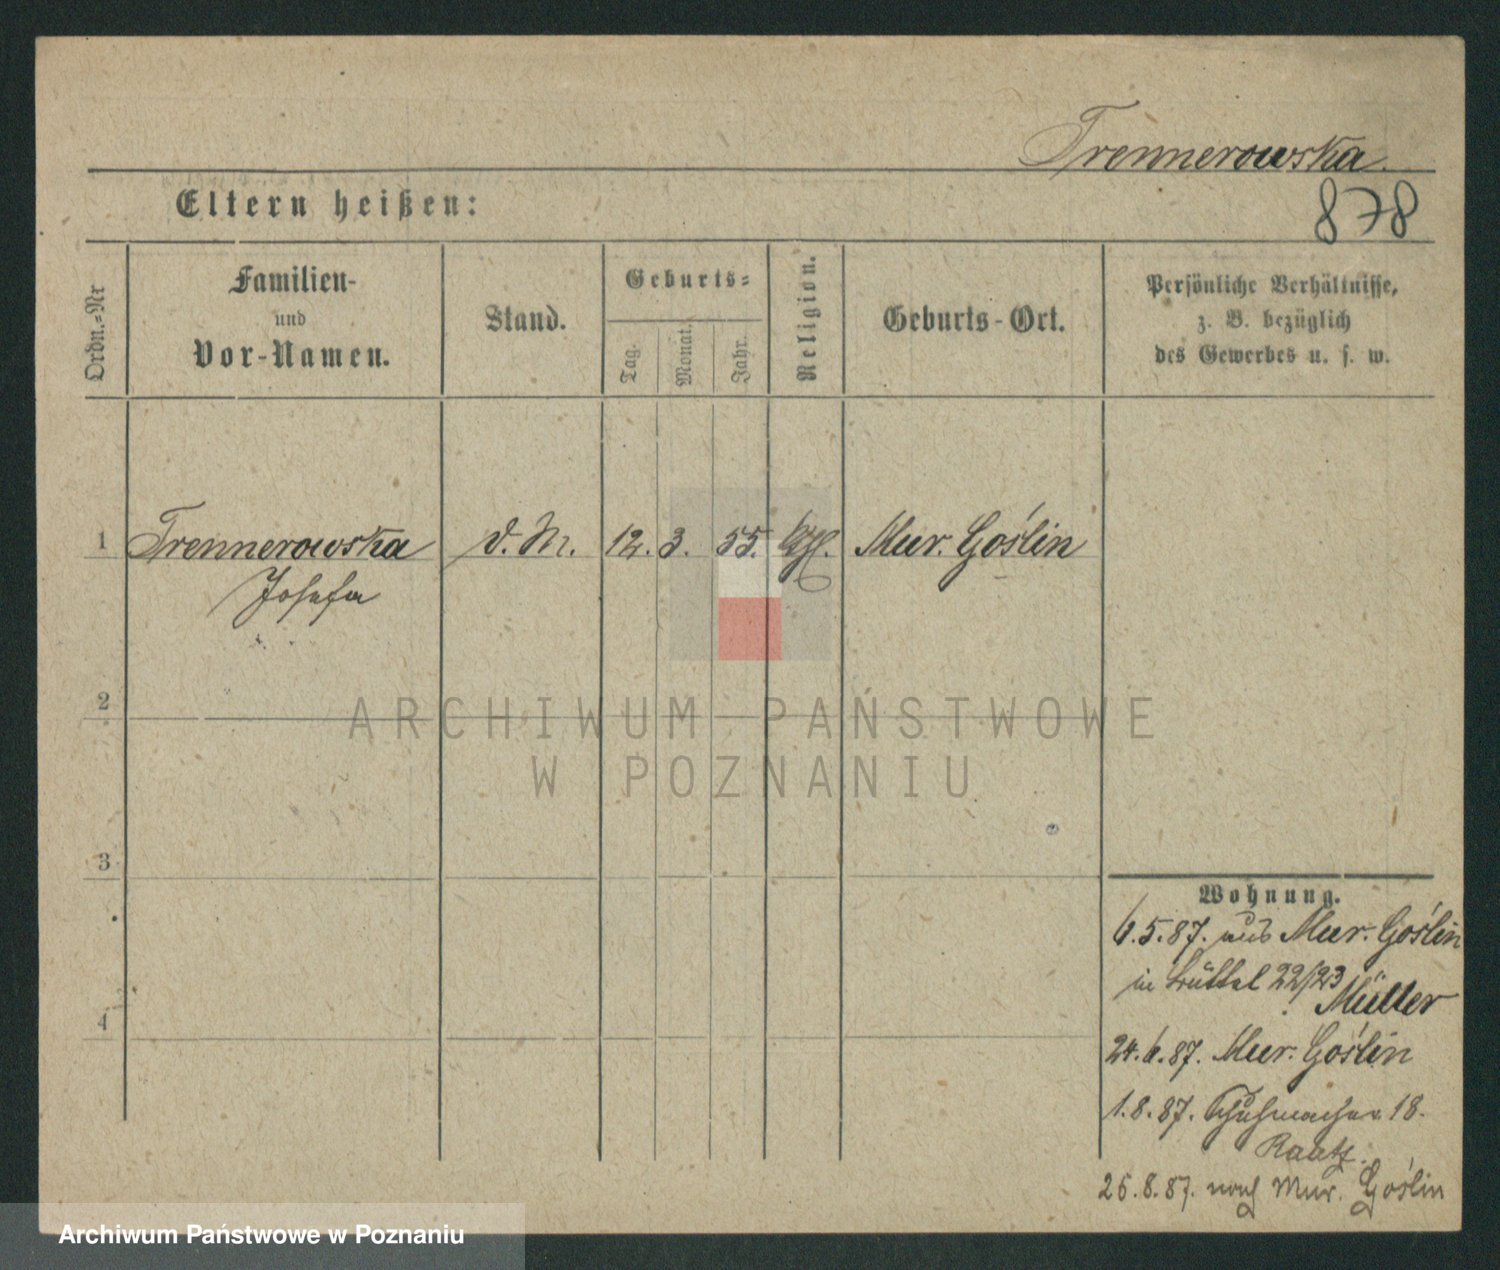 Trennerowska.
Eltern heißen:
878
Ordn.=Nr
Familien-
und
Vor-Namen.
Stand.
Geburts=
Tag.
Monat.
Jahr.
Religion.
Geburts-Ort.
Persönliche Verhältnisse,
z. B. bezüglich
des Gewerbes u. s. w.
1 Trennerowska d. M. 12. 3. 55. kth. Mur. Goślin
Josefa
2
ARCHIWUM PAŃSTWOWE
W POZNANIU
3
Wohnung.
6.5.87. aus Mur. Goślin
in 22/23
Müller
4
24.6.87. Mur. Goślin
1.8.87. Schuhmacher. 18.
Raatz.
25.8.87. nach Mur. Goślin
Archiwum Państwowe w Poznaniu